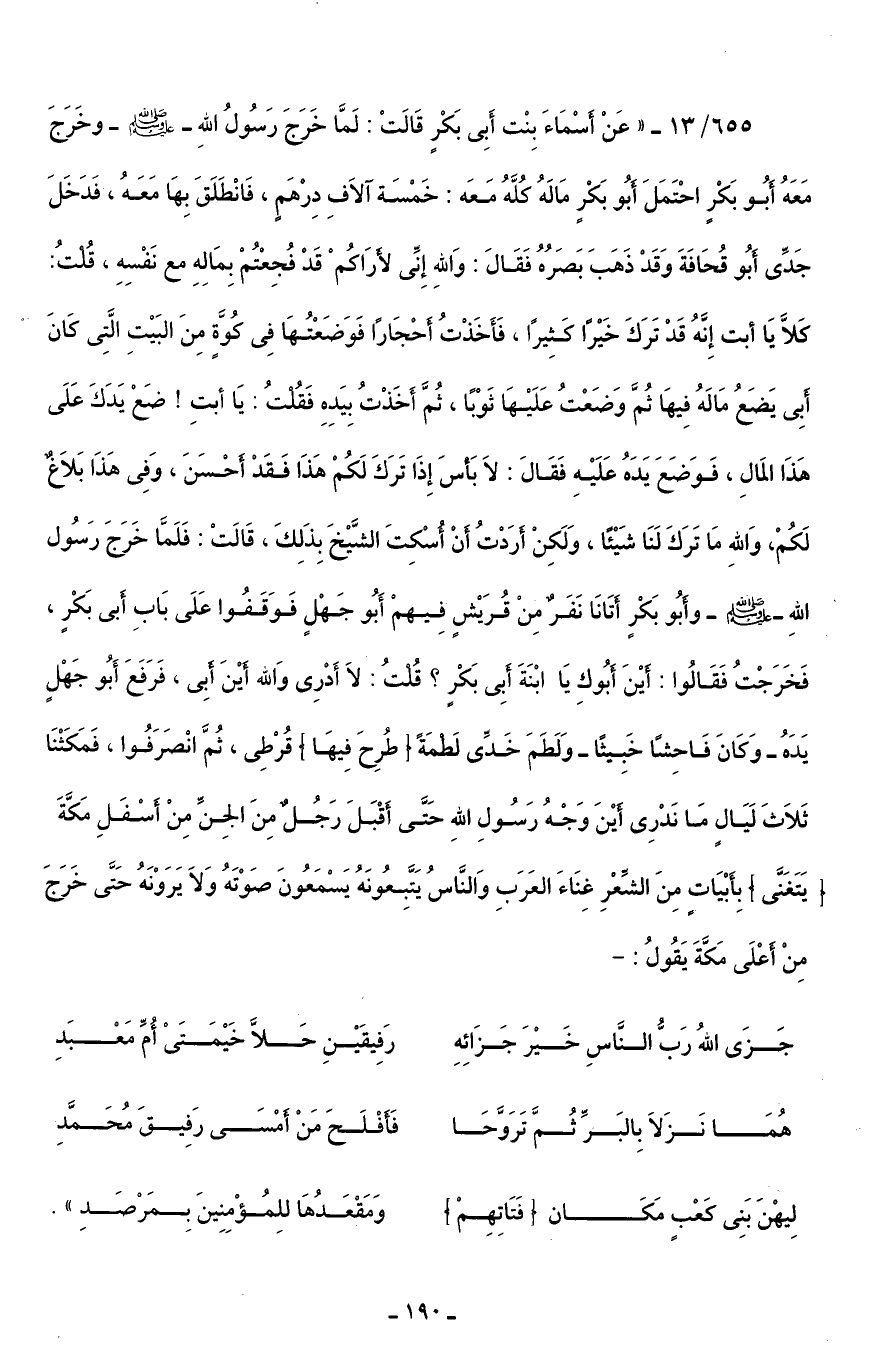 ٦٥٥/ ١٣ ـ « عَنْ أَسْمَاءَ بِنْت أَبِى بَكْرٍ قَالَتْ : لَمَّا خَرَجَ رَسُولُ اللهِ ـ ﷺ ـ وخَرَجَ
مَعَهُ أَبُو بَكْرٍ احْتَمَلَ أَبُو بَكْرٍ مَالَهُ كُلَّهُ مَعَه : خَمْسَة آلاَفِ دِرْهَمٍ ، فَانْطَلَقَ بِهَا مَعَهُ ، فَدَخَلَ
جَدِّى أَبُو قُحَافَةَ وَقَدْ ذَهَبَ بَصَرُهُ فَقَالَ : وَاللهِ إِنِّى لأَرَاكُمْ قَدْ فُجِعْتُمْ بِمَالِهِ مع نَفْسِهِ ، قُلْتُ:
كَلاَّ يَا أبت إِنَّهُ قَدْ تَرَكَ خَيْرًا كَثِيرًا ، فَأَخَذْتُ أَحْجَارًا فَوَضَعْتُهَا فِى كُوَّةٍ مِنَ البَيْتِ الَّتِى كَانَ
أَبِى يَضَعُ مَالَهُ فِيهَا ثُمَّ وَضَعْتُ عَلَيْهَا ثَوْبًا ، ثُمَّ أَخَذْتُ بِيَدِهِ فَقُلْتُ : يَا أبتِ ! ضَعْ يَدَكَ عَلَى
هَذَا المَالِ ، فَوَضَعَ يَدَهُ عَلَيْهِ فَقَالَ : لاَ بَأْسَ إِذَا تَرَكَ لَكُمْ هَذَا فَقَدْ أَحْسَنَ ، وَفِى هَذَا بَلاَغٌ
لَكُمْ، وَاللهِ مَا تَرَكَ لَنَا شَيْئًا ، وَلَكِنْ أَرَدْتُ أَنْ أُسْكِتَ الشَّيْخَ بِذَلِكَ ، قَالَتْ : فَلَمَّا خَرَجَ رَسُول
اللهِ ـ ﷺ ـ وأَبُو بَكْرٍ أَتَانَا نَفَرٌ مِنْ قُرَيْشٍ فِيهِمْ أَبُو جَهْلٍ فَوَقَفُوا عَلَى بَابِ أَبِى بَكْرٍ ،
فَخَرَجْتُ فَقَالُوا : أَيْنَ أَبُوك يَا ابْنَةَ أَبِى بَكْرٍ ؟ قُلْتُ : لاَ أَدْرِى وَالله أَيْنَ أَبِى ، فَرَفَعَ أَبُو جَهْلٍ
يَدَهُ ـ وَكَانَ فَاحِشًا خَبِيثًا ـ وَلَطَمَ خَدِّى لَطْمَةً { طُرِحَ فِيهَا } قُرْطِى ، ثُمَّ انْصَرَفُوا ، فَمَكَثْنَا
ثَلاَثَ لَيَالٍ مَا نَدْرِى أَيْنَ وَجْهُ رَسُولِ اللهِ حَتَّى أَقْبَلَ رَجُلٌ مِنَ الجِنِّ مِنْ أَسْفَلِ مَكَّةَ
{ يَتَغَنَّى } بِأَبْيَاتٍ مِنَ الشِّعْرِ غِنَاءَ العَرَبِ وَالنَّاسُ يَتَّبِعُونَهُ يَسْمَعُونَ صَوْتَهُ وَلاَ يَرَوْنَهُ حَتَّى خَرَجَ
مِنْ أَعْلَى مَكَّةَ يَقُولُ : –
جَزَى اللهُ رَبُّ النَّاسِ خَيْرَ جَزَائِهِ رَفِيقَيْنِ حَلاَّ خَيْمَتَىْ أُمِّ مَعْبَدِ
هُمَا نَزَلاَ بِالبَرِّ ثُمَّ تَرَوَّحَا فَأَفْلَحَ مَنْ أَمْسَى رَفِيقَ مُحَمَّدِ
لِيهْنَ بَنِى كَعْبٍ مَكَانَ { فَتَاتِهِمْ } وَمَقْعَدُهَا لِلمُؤْمِنِينَ بِمَرْصَدِ » .
ـ ١٩٠ ـ